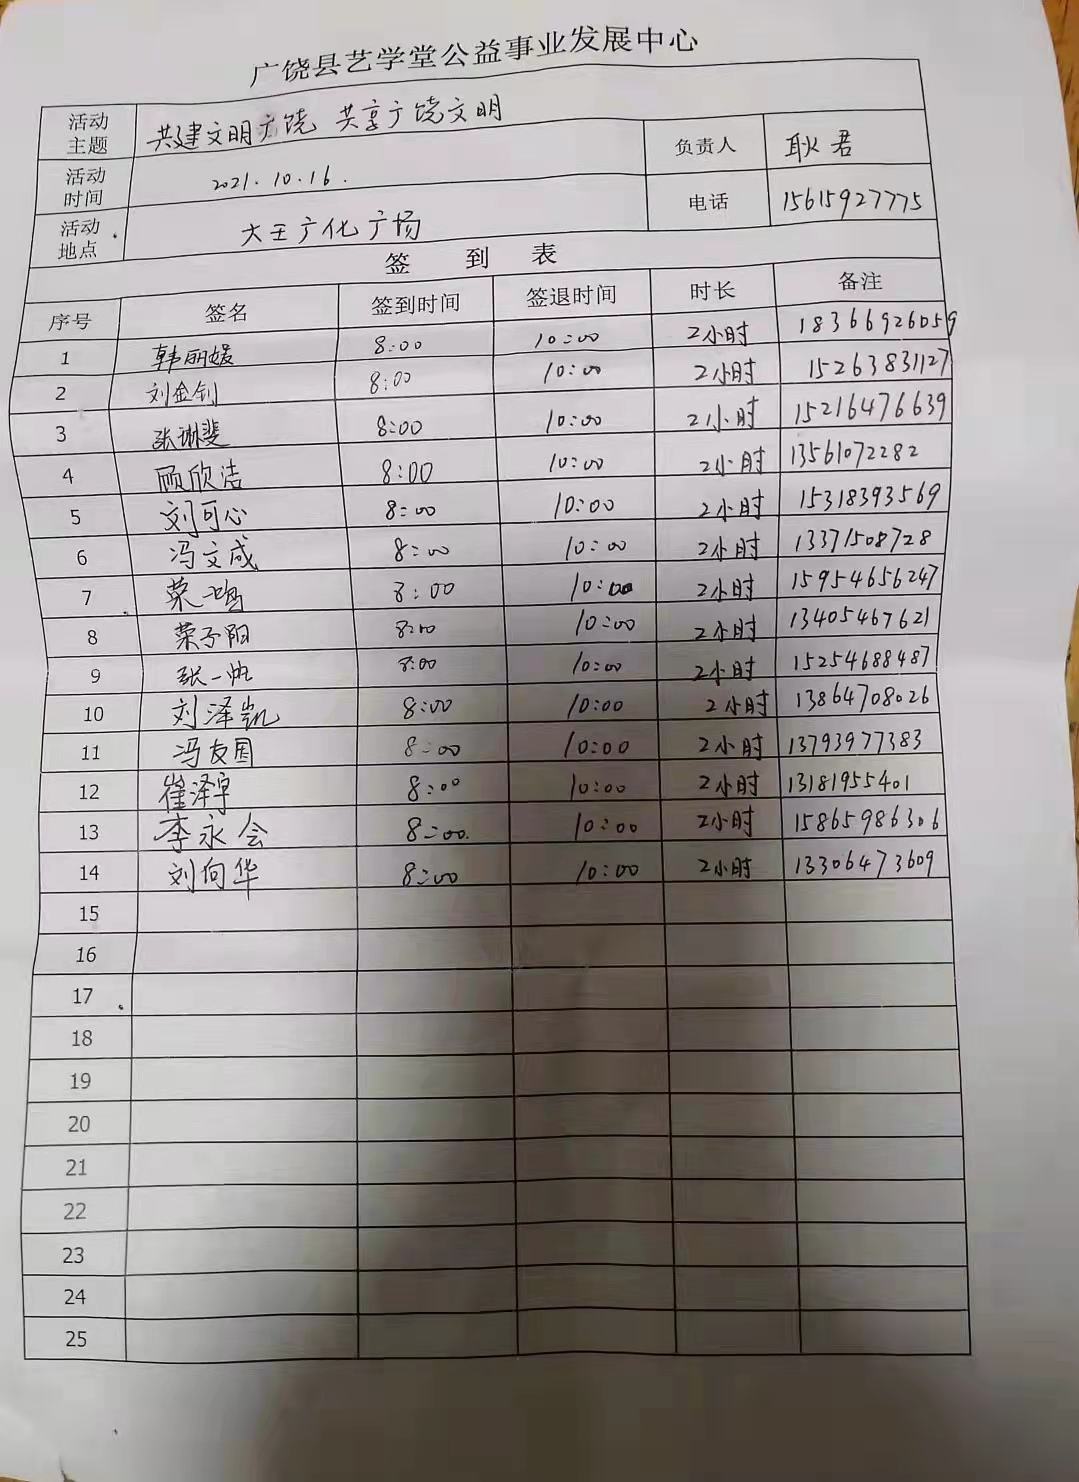 广饶县艺学堂公益事业发展中心
活动主题 共建文明广饶 共享广饶文明 负责人 耿君
活动时间 2021.10.16. 电话 15615927775
活动地点 大王广化广场
签 到 表
序号 签名 签到时间 签退时间 时长 备注
1 韩丽媛 8:00 10:00 2小时 18366926059
2 刘金钊 8:00 10:00 2小时 15263831127
3 张琳斐 8:00 10:00 2小时 15216476639
4 顾欣洁 8:00 10:00 2小时 13561072282
5 刘可心 8:00 10:00 2小时 15318393569
6 冯文成 8:00 10:00 2小时 13371508728
7 荣鸿 8:00 10:00 2小时 15954656247
8 荣子阳 8:00 10:00 2小时 13405467621
9 张一帆 8:00 10:00 2小时 15254688487
10 刘泽凯 8:00 10:00 2小时 13864708026
11 冯友国 8:00 10:00 2小时 13793977383
12 崔泽宇 8:00 10:00 2小时 13181955401
13 李永会 8:00. 10:00 2小时 15865986306
14 刘向华 8:00 10:00 2小时 13306473609
15
16
17
18
19
20
21
22
23
24
25